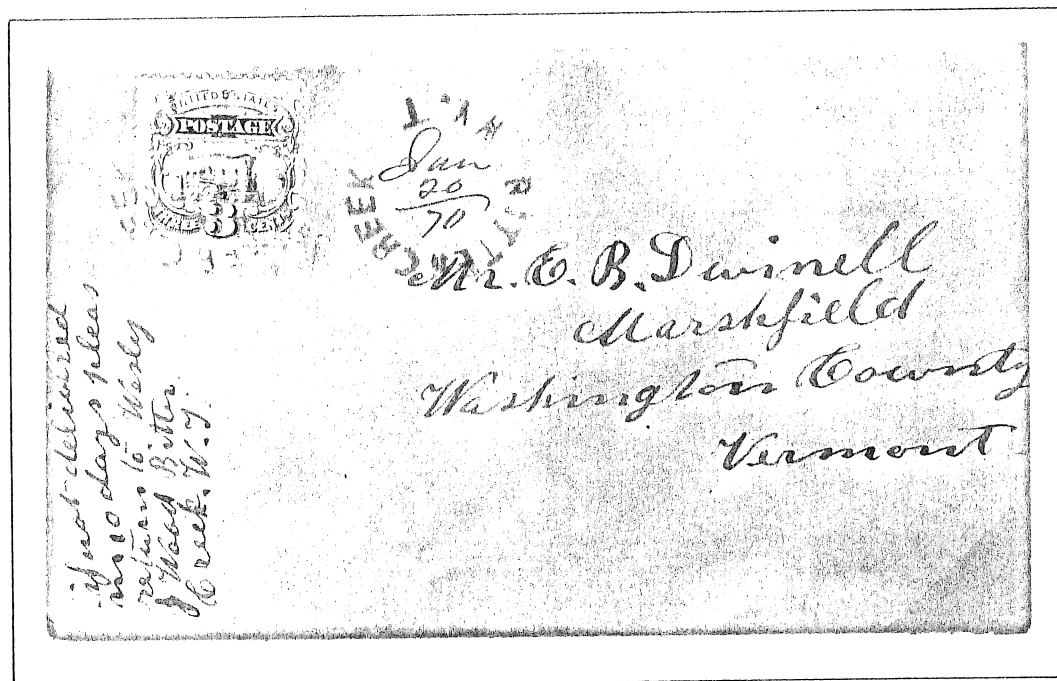 UNITED STATES
POSTAGE
THREE 3 CENTS
BITTER CREEK W.T.
Jan
20
70
Mr. E. B. Dwinell
Marshfield
Washington County
Vermont
if not delivered
in 10 days pleas
return to Wesly
J Wood Bitter
Creek. W.T.